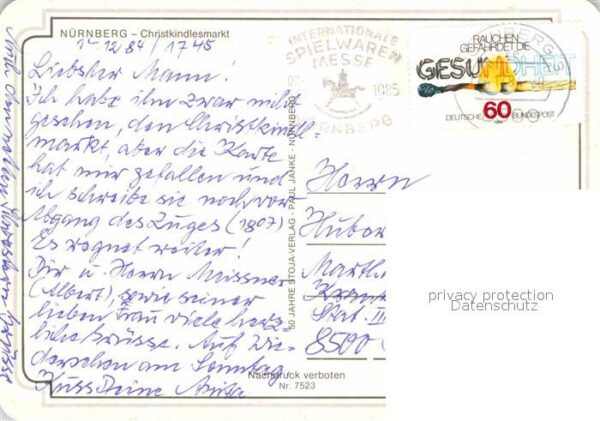 NÜRNBERG – Christkindlesmarkt
14 12 84 / 17 45
Liebster Mann!
Ich habe ihn zwar nicht
gesehen, den Christkindl-
markt, aber die Karte
hat mir gefallen und
ich schreibe sie noch vor
Abgang des Zuges (1807)
Es regnet weiter!
Dir u. Herrn Meissner
(Albert), sowie seiner
lieben Frau viele herz-
liche Grüsse. Auf Wie-
dersehen am Sonntag
Kuss Deine Anita
50 JAHRE STOJA-VERLAG · PAUL JANKE · NÜRNBERG
Nachdruck verboten
Nr. 7523
INTERNATIONALE
SPIELWAREN
MESSE
1985
NÜRNBERG
RAUCHEN
GEFÄHRDET DIE
GESUNDHEIT
60
DEUTSCHE BUNDESPOST
Herrn
Huber
Marth
Stat. II
8500
privacy protection
Datenschutz